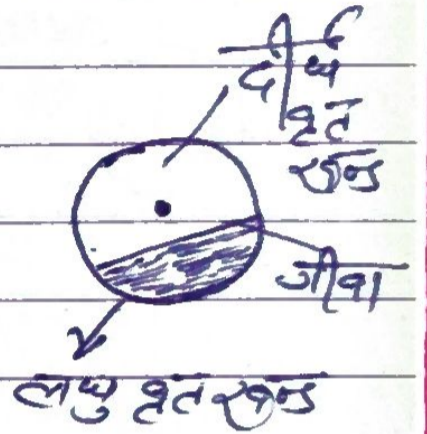 दीर्घ
वृत
खन्ड
जीवा
लघु वृत खन्ड